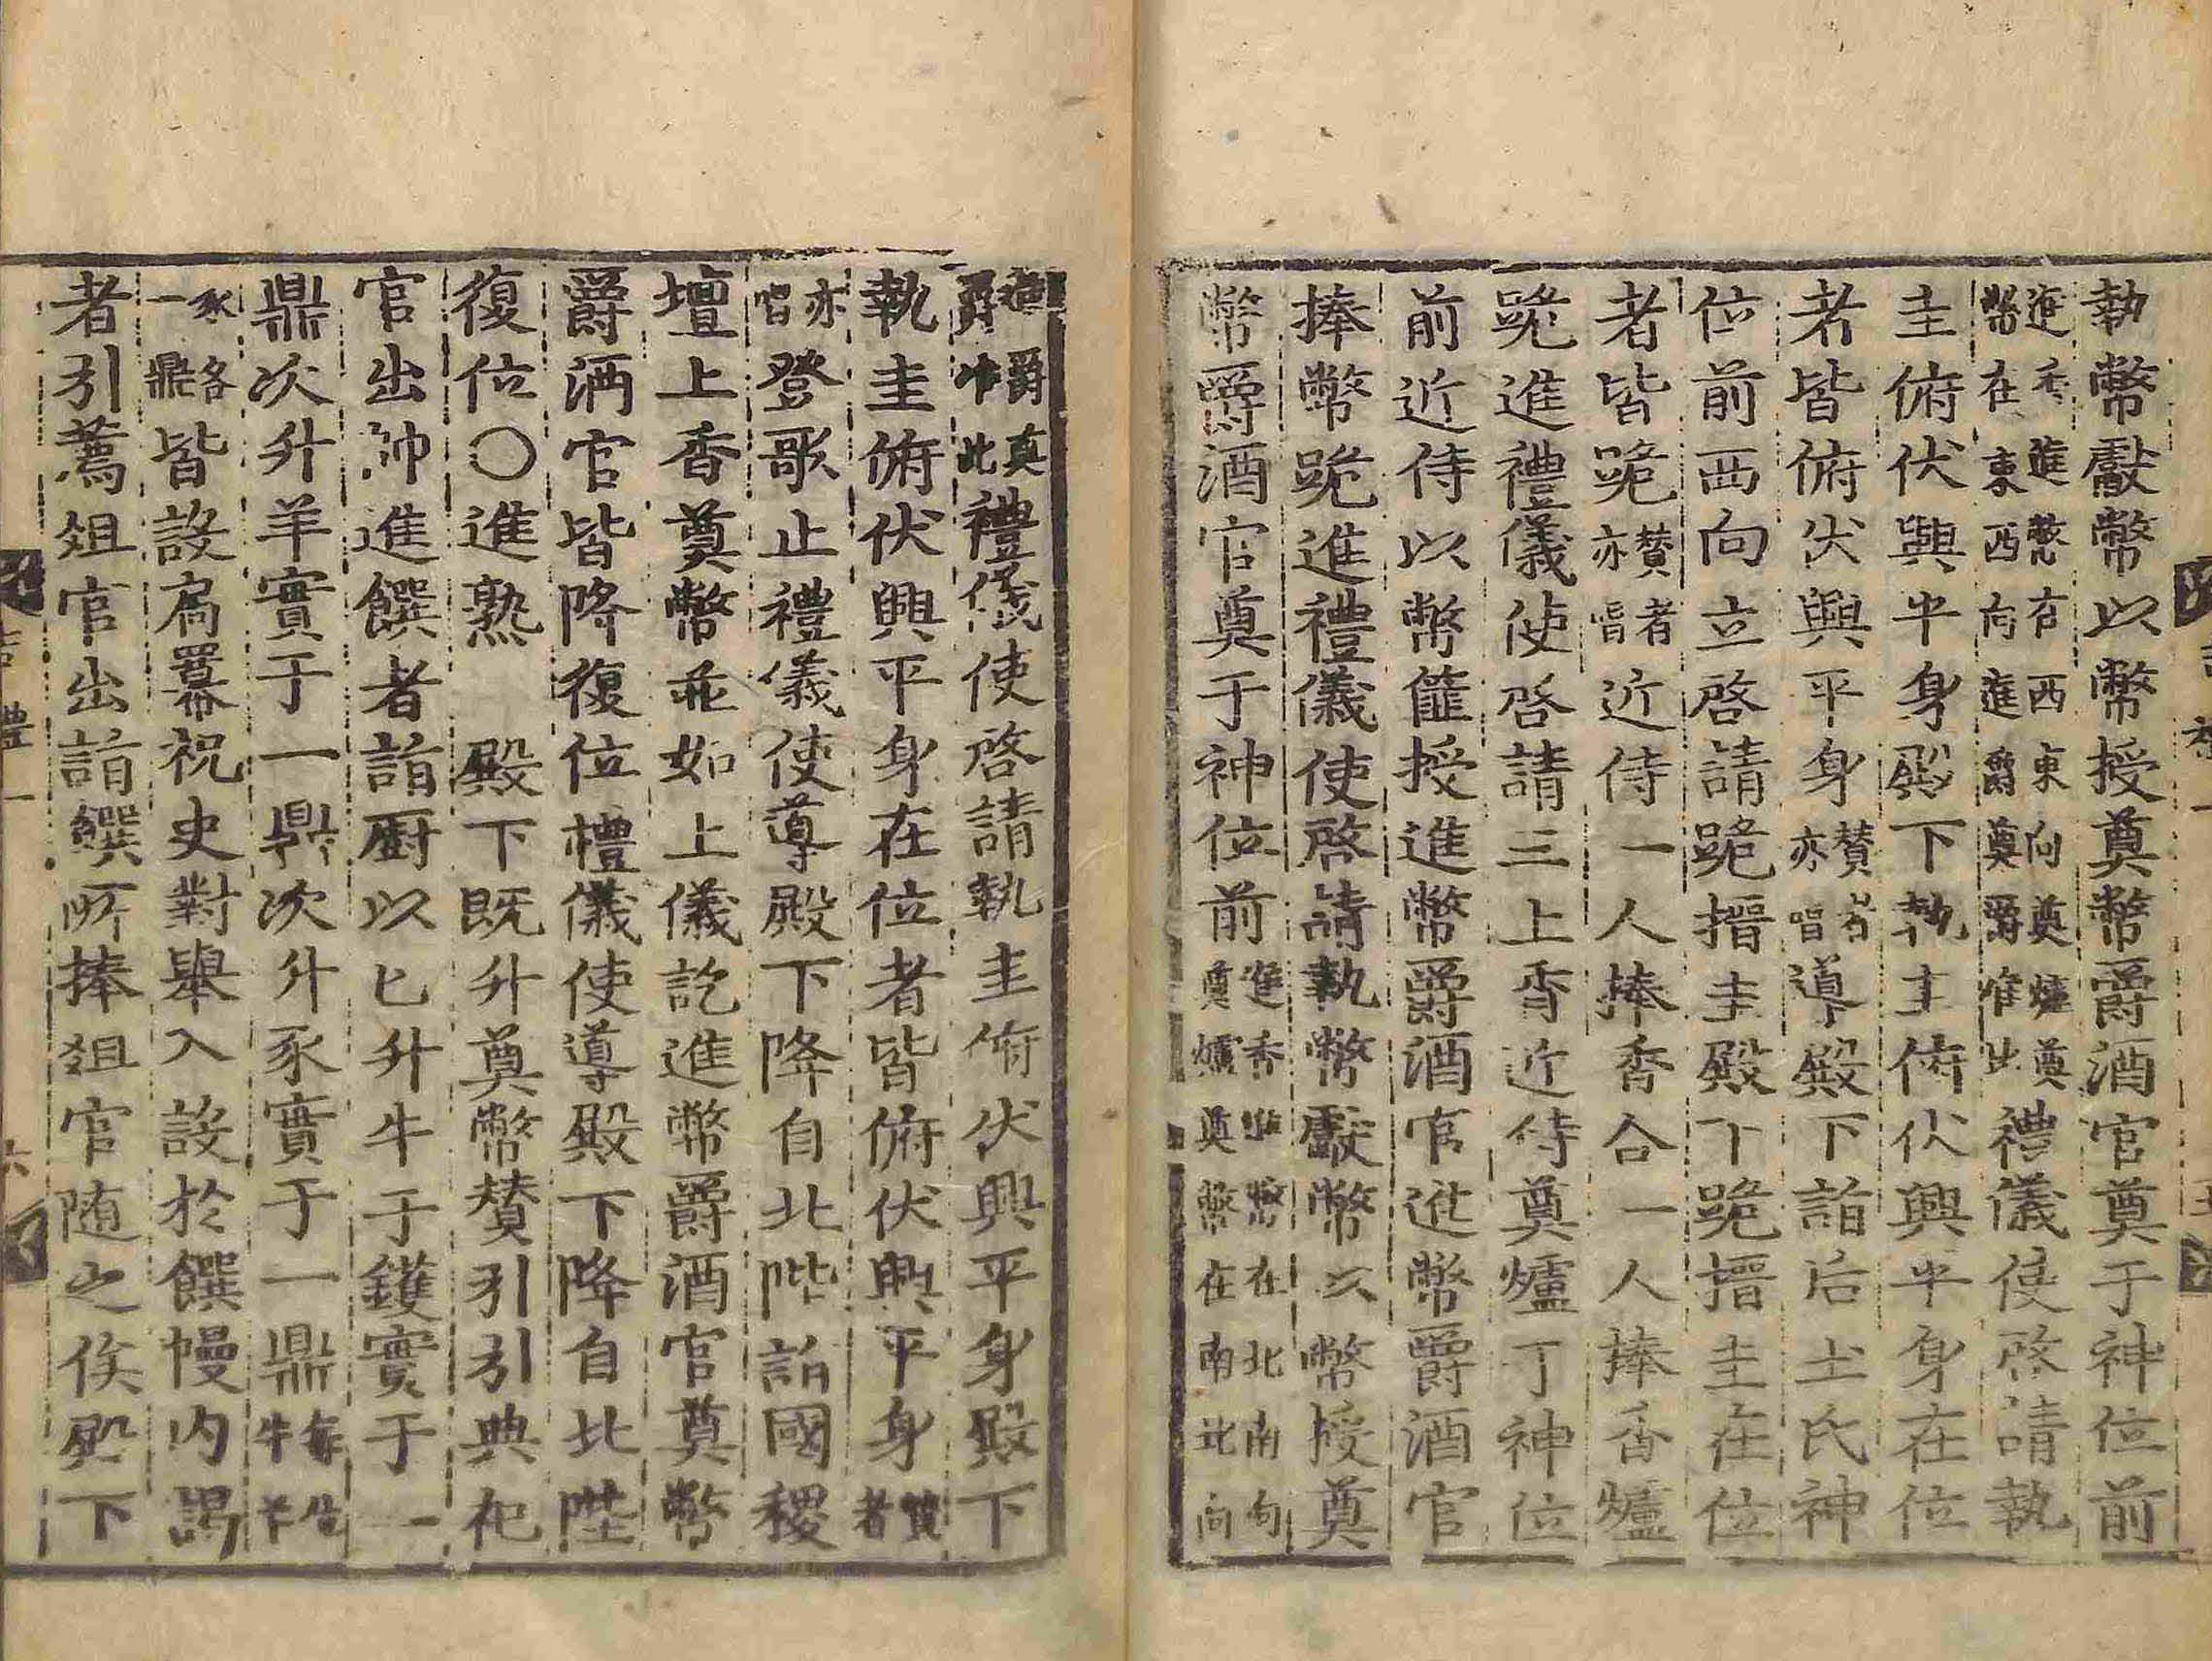 執幣獻幣以幣授奠幣爵酒官奠于神位前
進香進幣在西東向奠爐奠
幣在東西向進爵奠爵准此禮儀使啓請執
圭俯伏興平身殿下執圭俯伏興平身在位
者皆俯伏興平身贊者
亦唱導殿下詣后土氏神
位前西向立啓請跪搢圭殿下跪搢圭在位
者皆跪贊者
亦唱近侍一人捧香合一人捧香爐
跪進禮儀使啓請三上香近侍奠爐于神位
前近侍以幣篚授進幣爵酒官進幣爵酒官
捧幣跪進禮儀使啓請執幣獻幣以幣授奠
幣爵酒官奠于神位前進香進幣在北南向
奠爐奠幣在南北向
進爵奠
爵准此禮儀使啓請執圭俯伏興平身殿下
執圭俯伏興平身在位者皆俯伏興平身贊
者
亦
唱登歌止禮儀使導殿下降自北陛詣國稷
壇上香奠幣並如上儀訖進幣爵酒官奠幣
爵酒官皆降復位禮儀使導殿下降自北陛
復位〇進熟 殿下旣升奠幣贊引引典祀
官出帥進饌者詣廚以匕升牛于鑊實于一
鼎次升羊實于一鼎次升豕實于一鼎每牲
牛羊
豕各
一鼎皆設扃羃祝史對舉入設於饌幔內謁
者引薦俎官出詣饌所捧俎官随之俟殿下
吉禮一
六